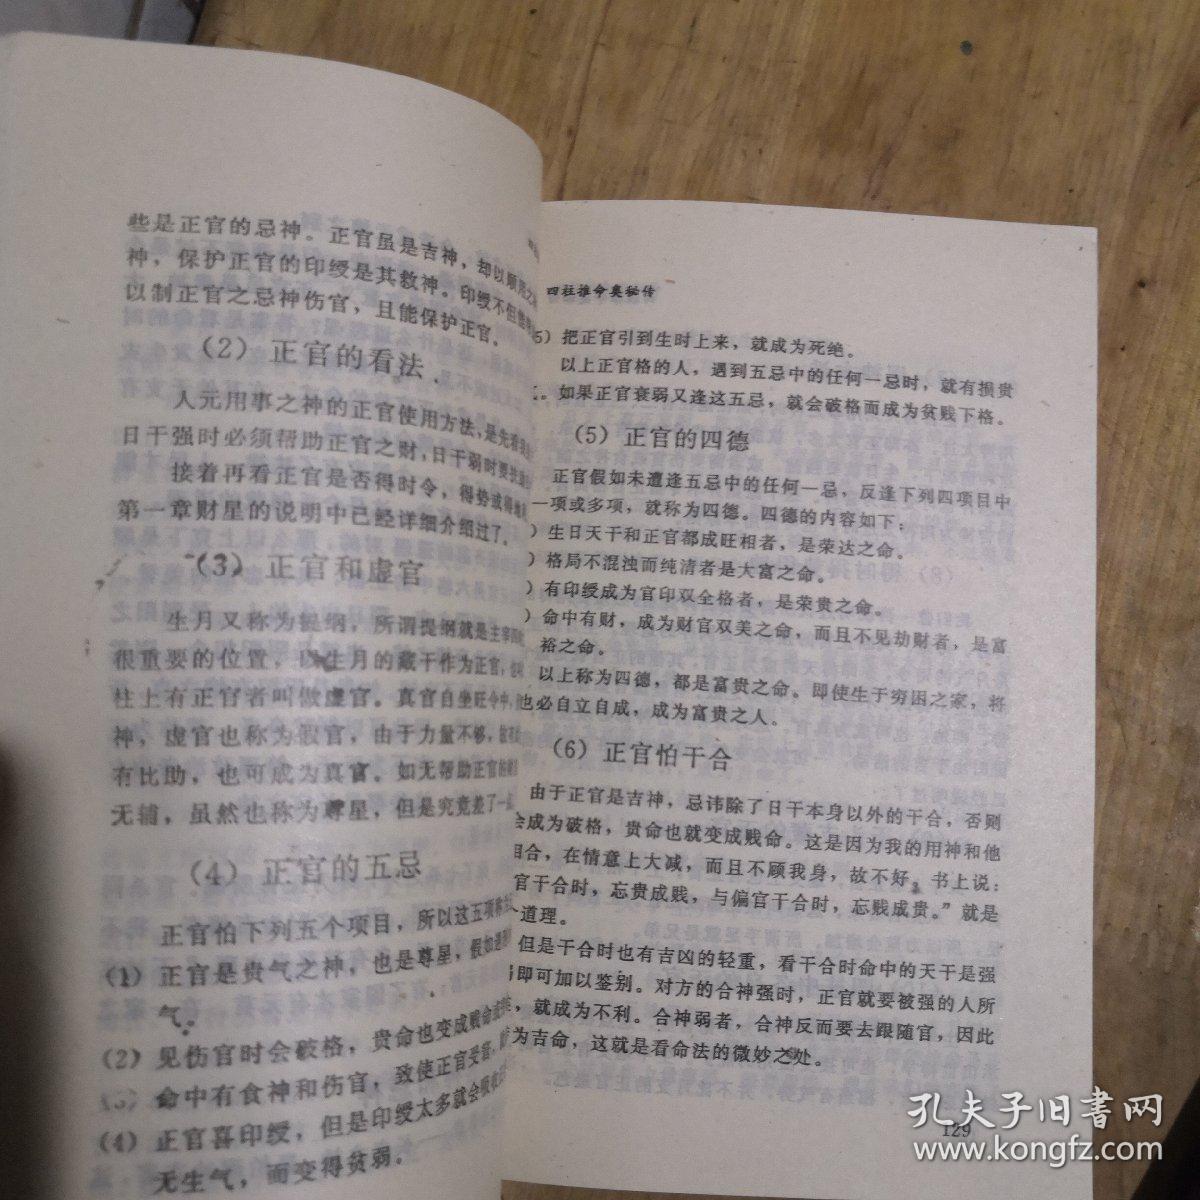 些是正官的忌神。正官虽是吉神，却以顾
神，保护正官的印绶是其救神。印绶不但能
以制正官之忌神伤官，且能保护正官。
（2）正官的看法
人元用事之神的正官使用方法，是先看
日干强时必须帮助正官之财，日干弱时要扶
接着再看正官是否得时令，得势或得地
第一章财星的说明中已经详细介绍过了。
（3）正官和虚官
生月又称为提纲，所谓提纲就是主宰
很重要的位置，以生月的藏干作为正官，
柱上有正官者叫做虚官。真官自坐旺令中，
神，虚官也称为假官，由于力量不够，故
有比助，也可成为真官。如无帮助正官的
无辅，虽然也称为尊星，但是究竟差了一
（4）正官的五忌
正官怕下列五个项目，所以这五项称
（1）正官是贵气之神，也是尊星，假如遇
气。
（2）见伤官时会破格，贵命也变成贱命或
（3）命中有食神和伤官，致使正官受害，
（4）正官喜印绶，但是印绶太多就会吸收
无生气，而变得贫弱。
四柱推命奥秘传
5）把正官引到生时上来，就成为死绝。
以上正官格的人，遇到五忌中的任何一忌时，就有损贵
。如果正官衰弱又逢这五忌，就会破格而成为贫贱下格。
（5）正官的四德
正官假如未遭逢五忌中的任何一忌，反逢下列四项目中
一项或多项，就称为四德。四德的内容如下：
）生日天干和正官都成旺相者，是荣达之命。
）格局不混浊而纯清者是大富之命。
）有印绶成为官印双全格者，是荣贵之命。
）命中有财，成为财官双美之命，而且不见劫财者，是富
裕之命。
以上称为四德，都是富贵之命。即使生于穷困之家，将
也必自立自成，成为富贵之人。
（6）正官怕干合
由于正官是吉神，忌讳除了日干本身以外的干合，否则
会成为破格，贵命也就变成贱命。这是因为我的用神和他
相合，在情意上大减，而且不顾我身，故不好。书上说：
官干合时，忘贵成贱，与偏官干合时，忘贱成贵。”就是
个道理。
但是干合时也有吉凶的轻重，看干合时命中的天干是强
弱即可加以鉴别。对方的合神强时，正官就要被强的人所
，就成为不利。合神弱者，合神反而要去跟随官，因此
为吉命，这就是看命法的微妙之处。
129
孔夫子旧书网
www.kongfz.com